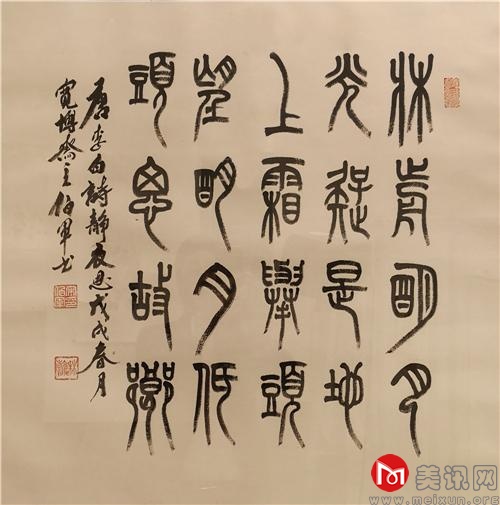 牀前明月
光疑是地
上霜舉頭
望明月低
頭思故鄉
唐李白詩靜夜思戊戌春月
寬博齋主伯軍书
美讯网
www.meixun.org